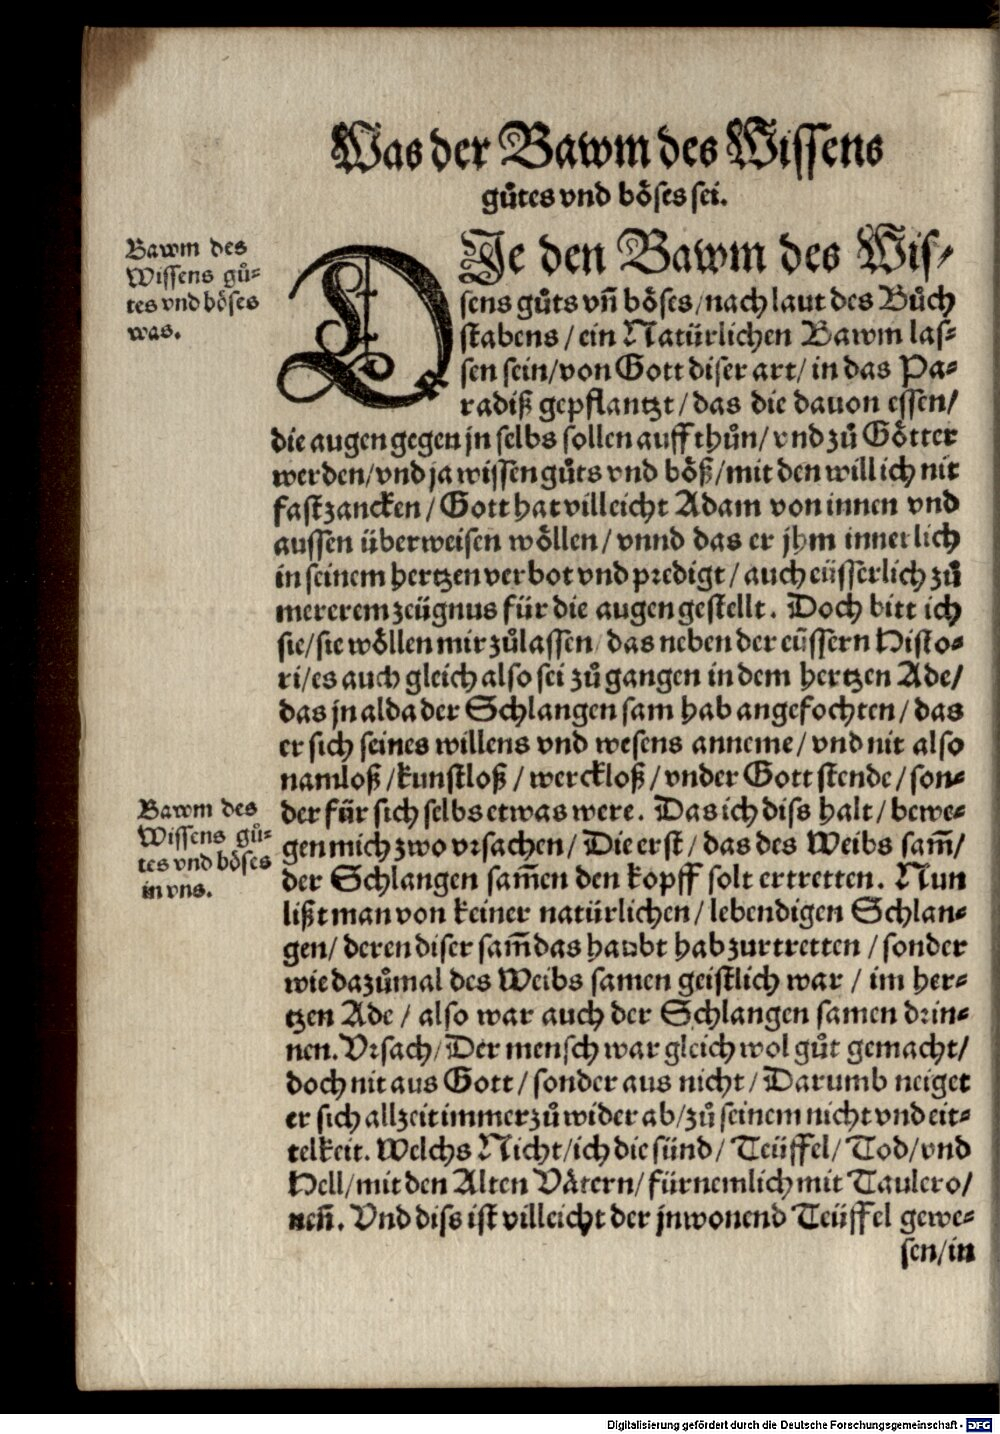 Was der Bawm des Wissens
gůtes vnd bőses sei.
Bawm des
Wissens gů-
tes vnd bőses
was.
DJe den Bawm des Wis-
sens gůts vñ bőses/nach laut des Bůch
stabens/ein Natürlichen Bawm las-
sen sein/von Gott diser art/in das Pa-
radiß gepflantzt/das die dauon essen/
die augen gegen jn selbs sollen auff thůn/vnd zů Gőtter
werden/vnd ja wissen gůts vnd bőß/mit den will ich nit
fast zancken/Gott hat villeicht Adam von innen vnd
aussen überweisen wőllen/vnnd das er jhm innerlich
in seinem hertzen verbot vnd predigt/auch eüsserlich zů
mererem zeügnus für die augen gestellt. Doch bitt ich
sie/sie wőllen mir zůlassen/das neben der eüssern Histo-
ri/es auch gleich also sei zů gangen in dem hertzen Ade/
das jn alda der Schlangen sam hab angefochten/das
er sich seines willens vnd wesens anneme/vnd nit also
namloß/kunstloß/werckloß/vnder Gott stende/son-
der für sich selbs etwas were. Das ich diss halt/bewe-
gen mich zwo vrsachen/Die erst/das des Weibs sam̃/
der Schlangen sam̃en den kopff solt ertretten. Nun
lißt man von keiner natürlichen/lebendigen Schlan-
gen/deren diser sam̃ das haubt hab zurtretten/sonder
wie dazůmal des Weibs samen geistlich war/im her-
tzen Ade/also war auch der Schlangen samen drin-
nen. Vrsach/Der mensch war gleich wol gůt gemacht/
doch nit aus Gott/sonder aus nicht/Darumb neiget
er sich allzeit immerzů wider ab/zů seinem nicht vnd eit-
telkeit. Welchs Nicht/ich die sünd/Teüffel/Tod/vnd
Hell/mit den Alten Våtern/fürnemlich mit Taulero/
neñ. Vnd diss ist villeicht der jnwonend Teüffel gewe-
sen/in
Bawm des
Wissens gů-
tes vnd bőses
in vns.
Digitalisierung gefördert durch die Deutsche Forschungsgemeinschaft - DFG